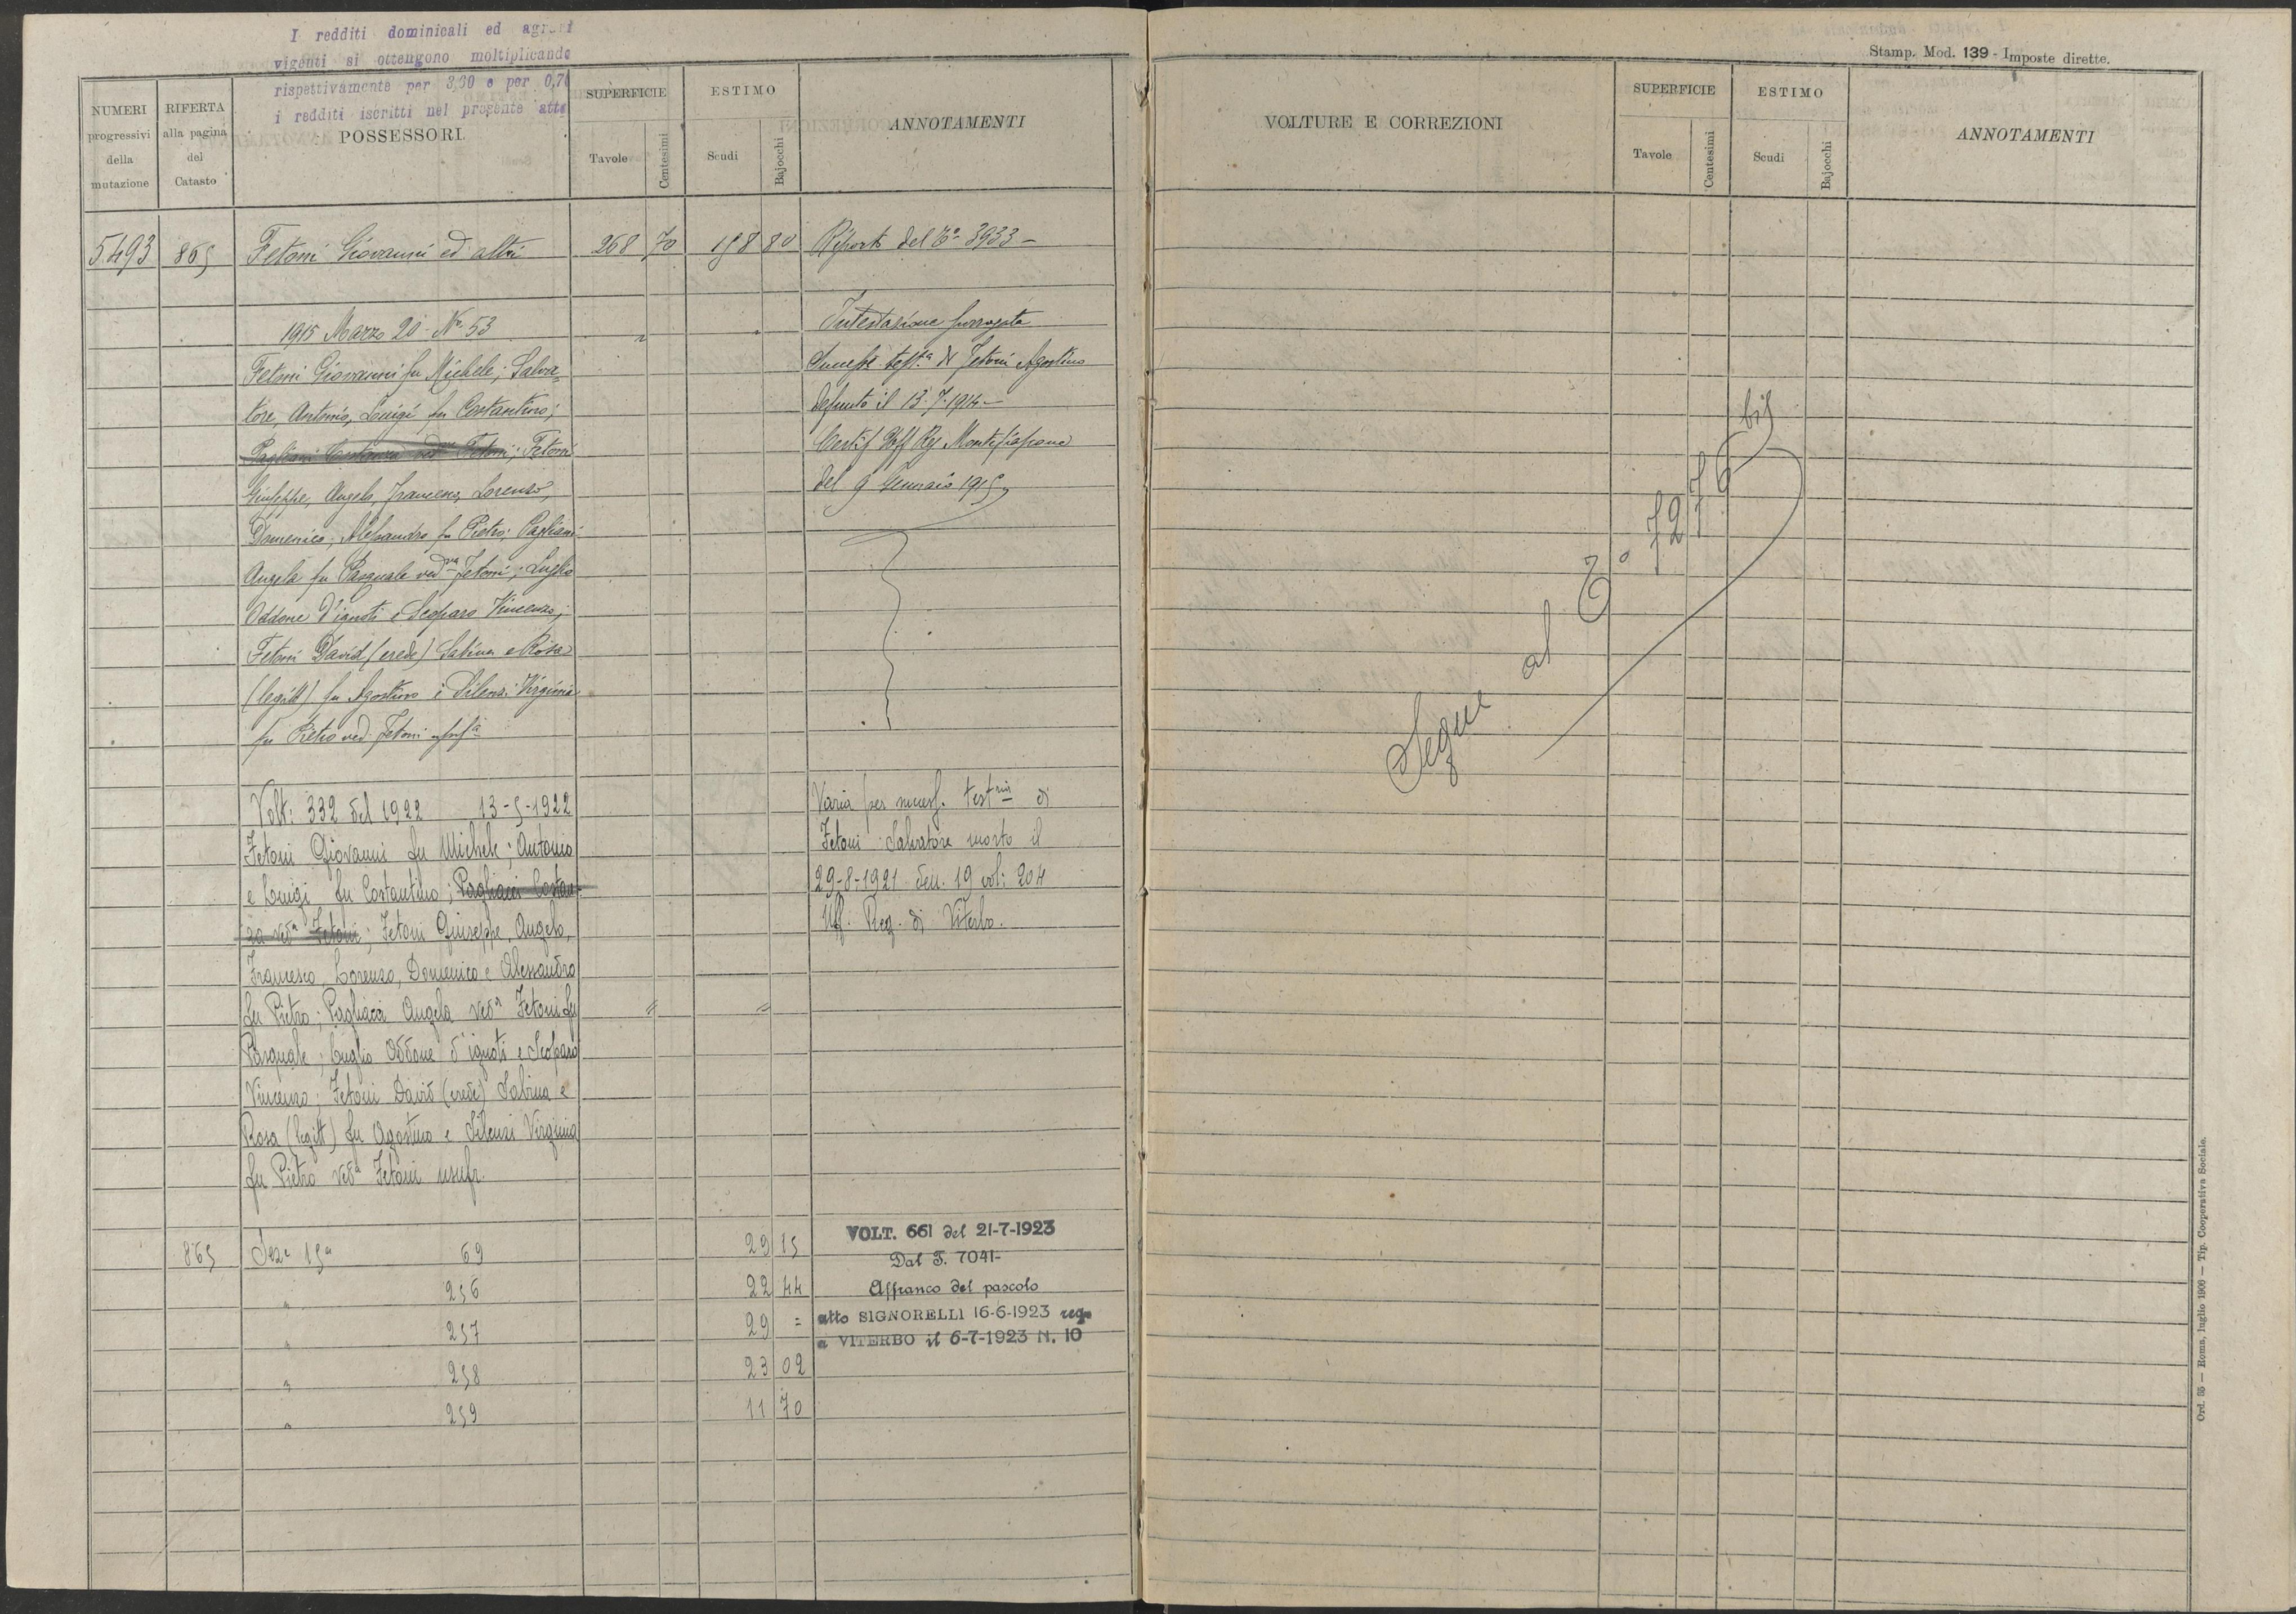 I redditi dominicali ed agrari
vigenti si ottengono moltiplicando
rispettivamente per 3,30 e per 0,70
i redditi iscritti nel presente atto
Stamp. Mod. 139 - Imposte dirette.
NUMERI progressivi della mutazione
RIFERTA alla pagina del Catasto
POSSESSORI
SUPERFICIE
Tavole
Centesimi
ESTIMO
Scudi
Bajocchi
ANNOTAMENTI
VOLTURE E CORREZIONI
SUPERFICIE
Tavole
Centesimi
ESTIMO
Scudi
Bajocchi
ANNOTAMENTI
5493 865 Fetoni Giovanni ed altri 268 70 158 80 Riporto del T.o 3933 -
1915 Marzo 20 - No 53
Fetoni Giovanni fu Michele; Salva-
tore, Antonio, Luigi fu Costantino;
Pagliani Costanza ved.va Fetoni; Fetoni
Giuseppe, Angelo, Francesco, Lorenzo,
Domenico, Alessandro fu Pietro; Pagliani
Angela fu Pasquale ved.va Fetoni; Luglio
Oddone d'ignoti e Scoparo Vincenzo;
Fetoni David (erede) Sabina e Rosa
(legitt) fu Agostino e Silenzi Virginia
fu Pietro ved. Fetoni
Intestazione
Success. test.a di Fetoni Agostino
defunto il 13.7.1914 -
Certif Uff Reg Montefiascone
del 9 Gennaio 1915
Volt: 332 del 1922 13-5-1922
Fetoni Giovanni fu Michele; Antonio
e Luigi fu Costantino; Pagliacci Costan-
za ved.a Fetoni; Fetoni Giuseppe, Angelo,
Francesco, Lorenzo, Domenico e Alessandro
fu Pietro; Pagliacci Angela ved.a Fetoni fu
Pasquale; Luglio Oddone d'ignoti e Scoparo
Vincenzo; Fetoni David (erede) Sabina e
Rosa (legitt) fu Agostino e Silenzi Virginia
fu Pietro ved.a Fetoni usufr.
Varia per success. test.ria di
Fetoni Salvatore morto il
29-8-1921 den. 19 vol: 204
Uff. Reg. di Viterbo.
865 Sez.e 15a 69 29 15
" 256 22 44
" 257 29 =
" 258 23 02
" 259 11 70
VOLT. 661 del 21-7-1923
Dal T. 7041-
Affranco del pascolo
atto SIGNORELLI 16-6-1923 reg.
a VITERBO il 6-7-1923 N. 10
Segue al T.o 7276 bis
Ord. 55 — Roma, luglio 1906 — Tip. Cooperativa Sociale.